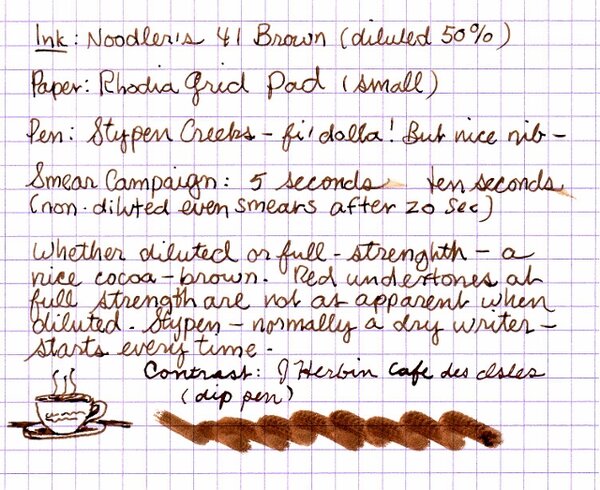 Ink: Noodler's 41 Brown (diluted 50%)
Paper: Rhodia Grid Pad (small)
Pen: Stypen Creeks - fi' dolla! But nice nib -
Smear Campaign: 5 seconds ten seconds
(non-diluted even smears after 20 sec)
Whether diluted or full-strenghth - a
nice cocoa-brown. Red undertones at
full strength are not as apparent when
diluted. Stypen - normally a dry writer -
starts every time.
Contrast: J Herbin Cafe des
(dip pen)